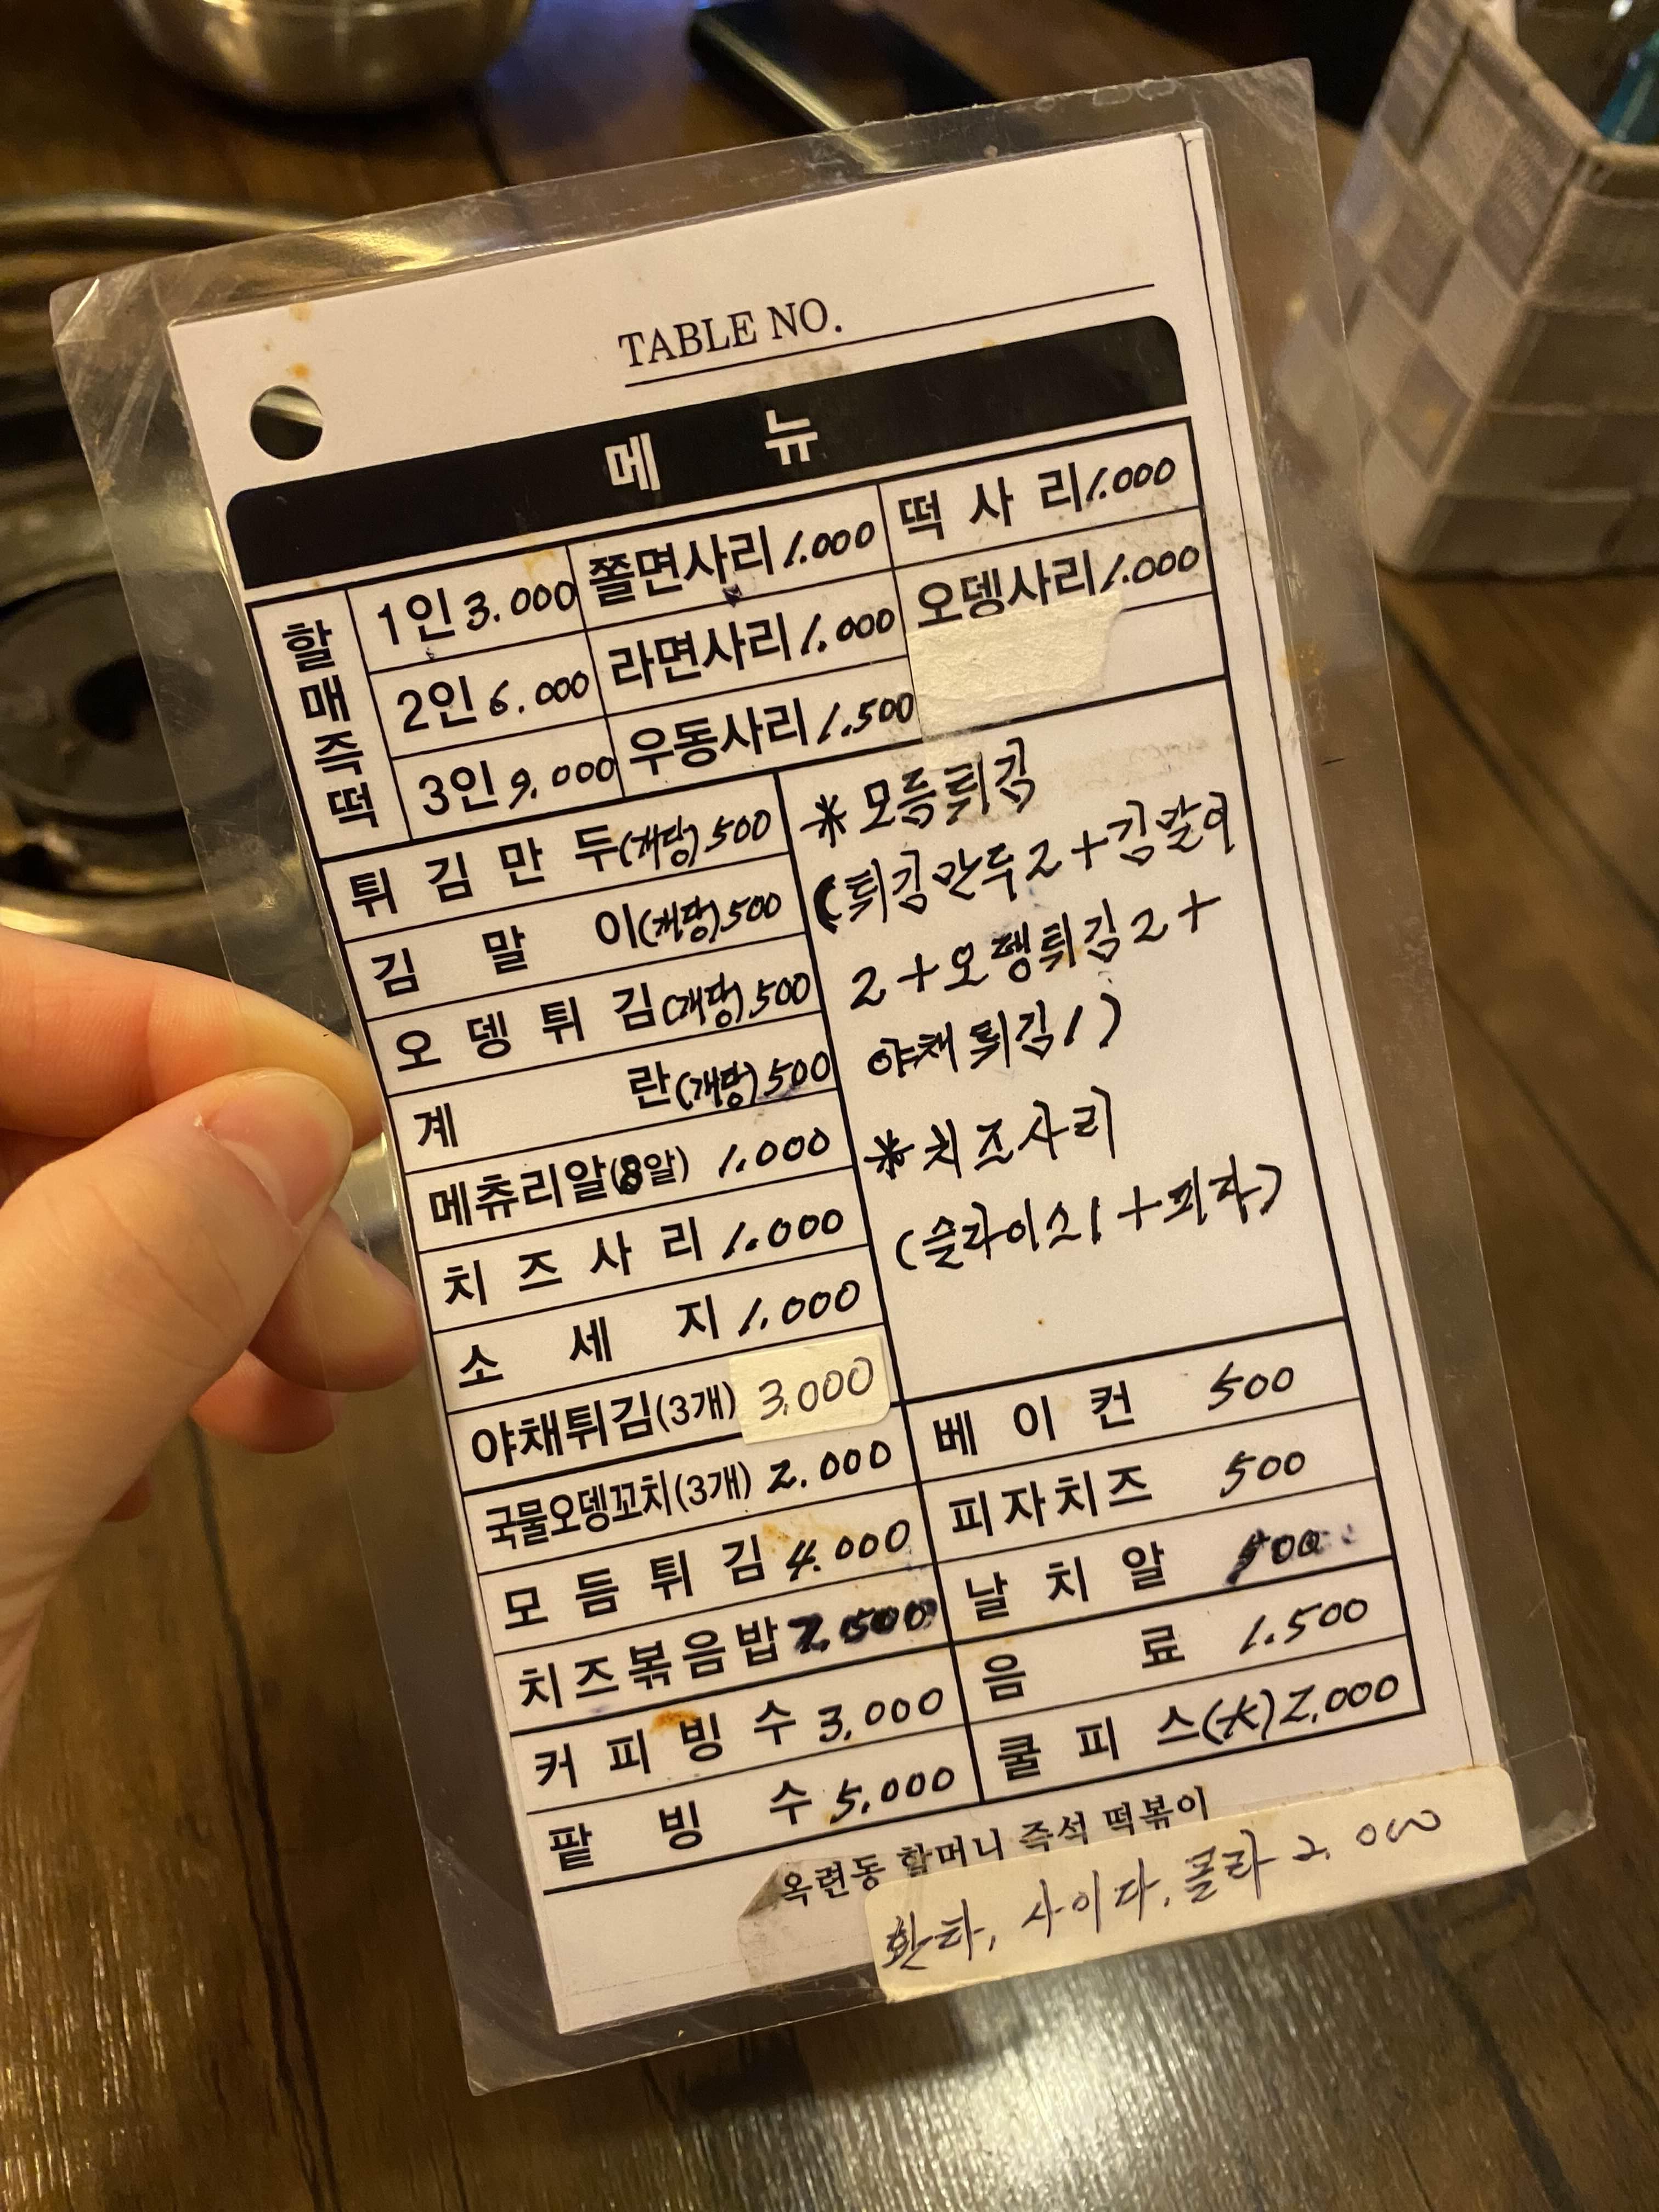 TABLE NO.
메 뉴
할매즉떡
1인 3.000
2인 6.000
3인 9.000
쫄면사리 1.000
라면사리 1.000
우동사리 1.500
떡 사 리 1.000
오뎅사리 1.000
튀 김 만 두(개당) 500
김 말 이(개당) 500
오 뎅 튀 김(개당) 500
계 란(개당) 500
메츄리알(8알) 1.000
치 즈 사 리 1.000
소 세 지 1.000
야채튀김(3개) 3.000
국물오뎅꼬치(3개) 2.000
모 듬 튀 김 4.000
치즈볶음밥
커 피 빙 수 3,000
팥 빙 수 5,000
*모듬튀김
(튀김만두2+김말이
2+오뎅튀김2+
야채튀김1)
*치즈사리
(슬라이스1+피자)
베 이 컨 500
피자치즈 500
날 치 알
음 료 1.500
쿨 피 스(大) 2,000
옥련동 할머니 즉석 떡볶이
환타, 사이다, 콜라 2.000